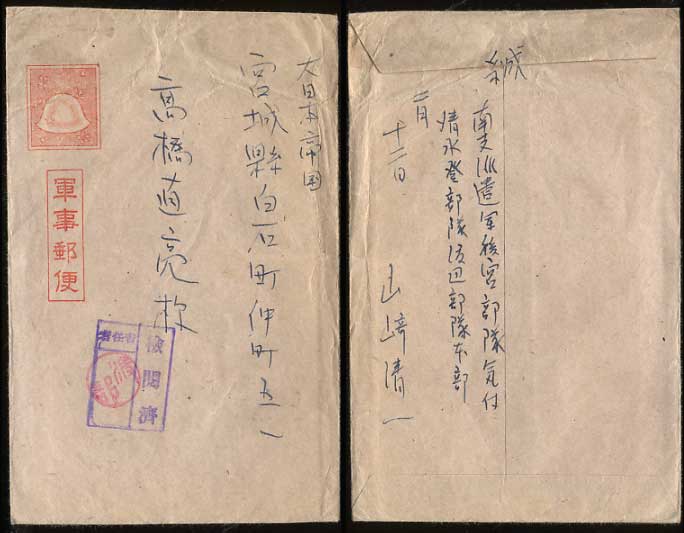 大日本帝国
宮城縣白石町仲町五一
高橋直亮様
軍事郵便
検閲済
緘
南支派遣軍後宮部隊気付
清水登部隊渡辺部隊本部
二月
十二日
山崎清一